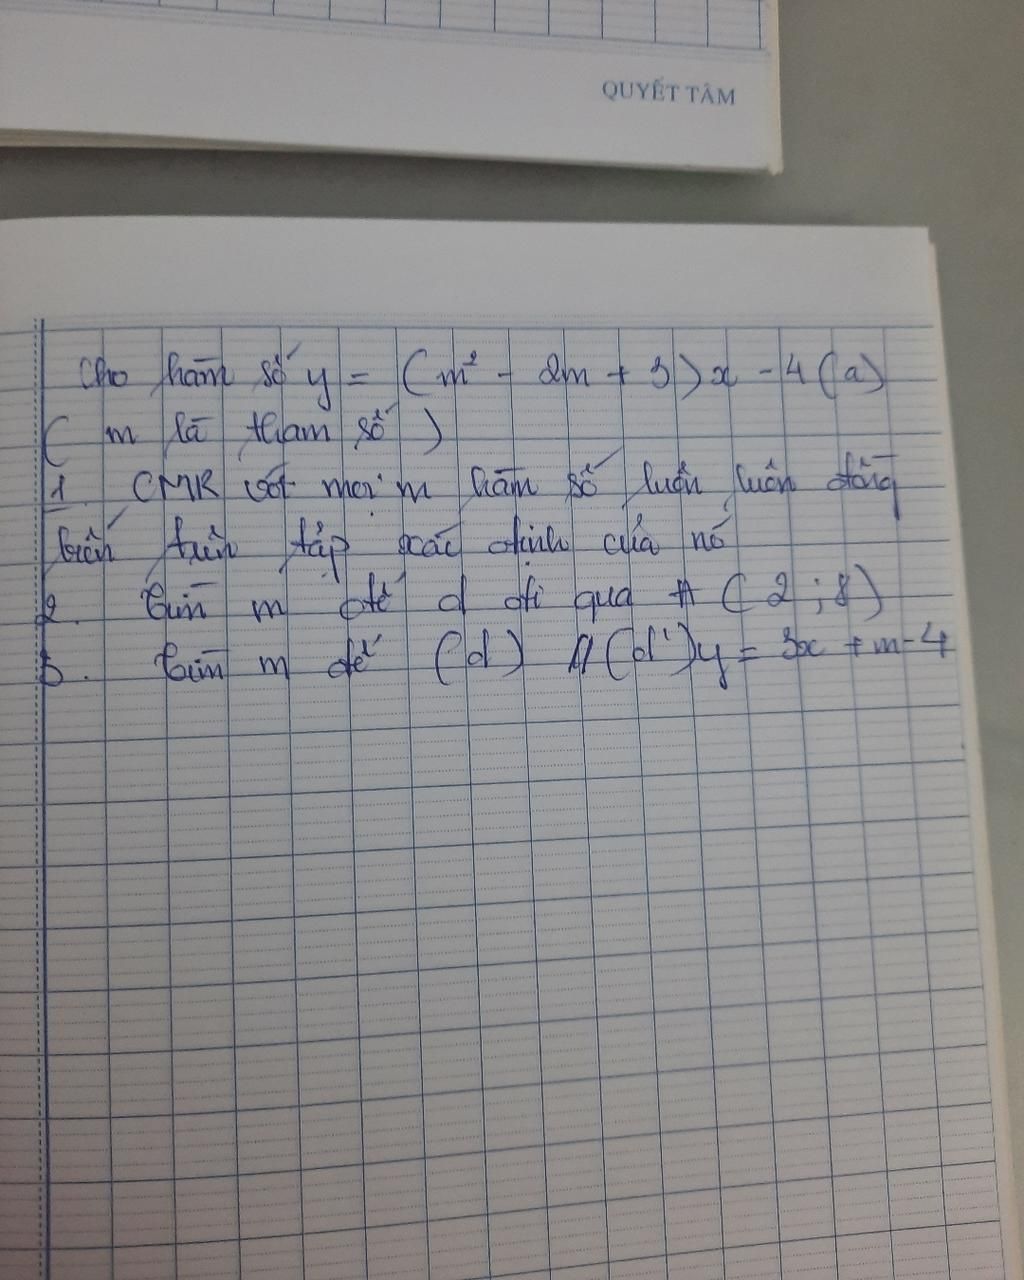 QUYẾT TÂM
Cho hàm số y = (m² - 2m + 3)x - 4 (d)
( m là tham số )
1. CMR với mọi m hàm số luôn luôn đồng
biến trên tập xác định của nó
2. Tìm m để d đi qua A ( 2 ; 8 )
3. Tìm m để (d) // (d') y = 3x + m - 4